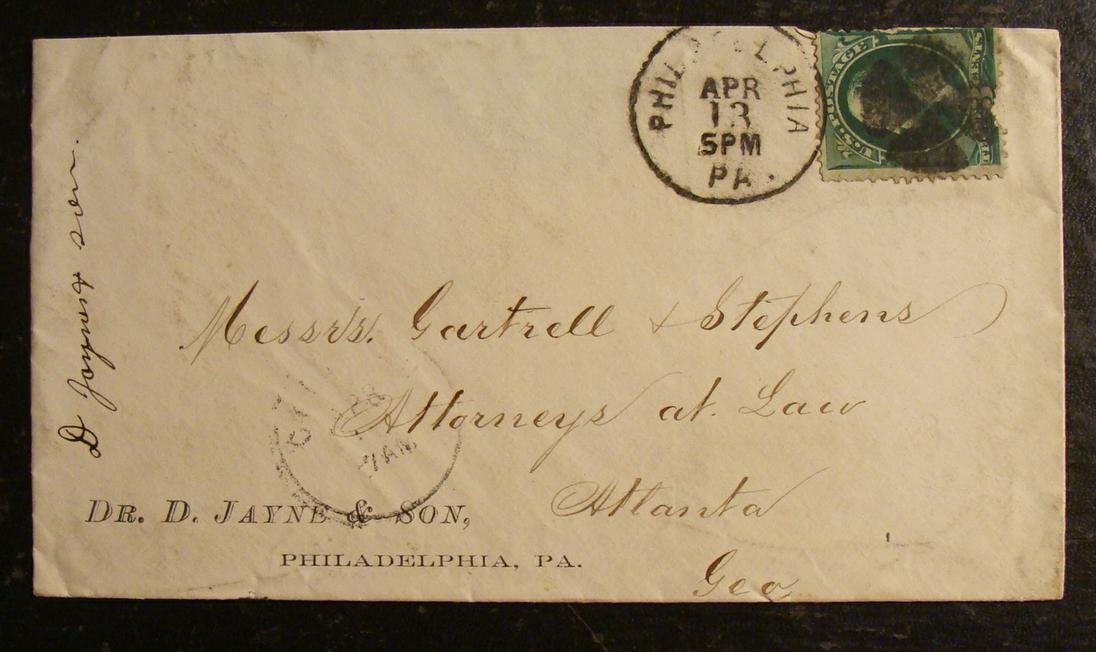 PHILADELPHIA
APR
13
5PM
PA.
U.S. POSTAGE
D Jayne & son.
Messrs. Gartrell & Stephens
Attorneys at Law
Atlanta
Geo
APR
7AM
DR. D. JAYNE & SON,
PHILADELPHIA, PA.